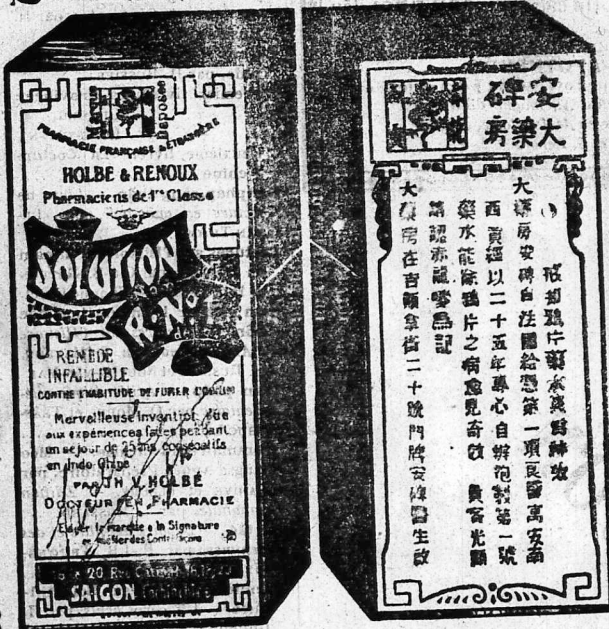 Marque
Déposée
PHARMACIE FRANÇAISE & ÉTRANGÈRE
HOLBÉ & RENOUX
Pharmaciens de 1re Classe
SOLUTION
R. No 1
REMÈDE
INFAILLIBLE
CONTRE L'HABITUDE DE FUMER L'OPIUM
Merveilleuse invention due
aux expériences faites pendant
un séjour de 25 ans consécutifs
en Indo-Chine
PAR TH. V. HOLBÉ
DOCTEUR EN PHARMACIE
Exiger la marque & la Signature
se méfier des Contrefaçons
20 Rue Catinat
SAIGON
安大
碑藥
房
龍
戒却鴉片藥水
大藥房安碑自法國給憑第一項良醫寓安南
西貢經以二十五年專心自辦泡製第一號
藥水能除鴉片之病愈見奇效 貴客光顧
請認赤龍嘜爲記
大藥房在吉顛拿街二十號門牌安碑醫生啟